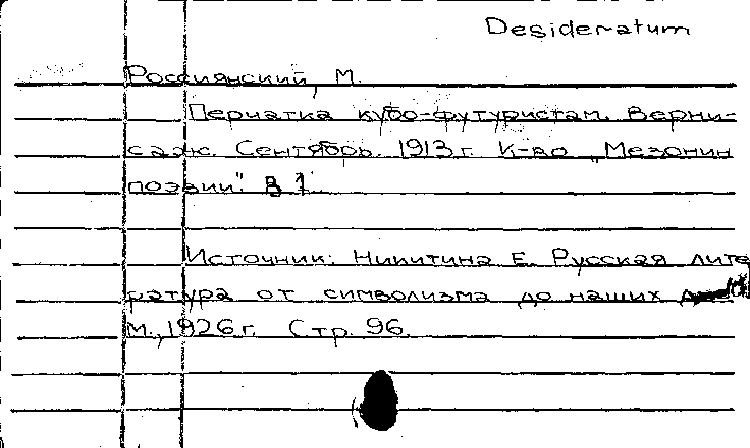 Desideratum
Россиянский, М.
Перчатка кубо-футуристам. Верни-
саж. Сентябрь 1913 г. К-во „Мезонин
поэзии". В 1
Источник: Никитина Е. Русская лите
ратура от символизма до наших
М., 1926 г. Стр. 96.